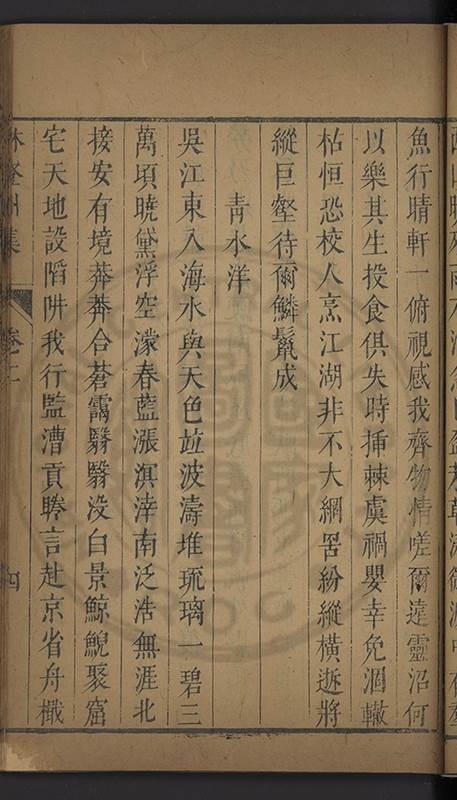 魚行晴軒一俯視感我齊物情嗟爾違靈沼何
以樂其生投食俱失時揷棘虞禍嬰幸免涸轍
枯恒恐校人烹江湖非不大網罟紛縱橫逝將
縱巨壑待爾鱗鬣成
青水洋
吳江東入海水與天色竝波濤堆琉璃一碧三
萬頃曉黛浮空濛春藍漲溟涬南泛浩無涯北
接安有境莽莽合蒼靄翳翳没白景鯨鯢聚窟
宅天地設䧟阱我行監漕貢睠言赴京省舟檝
卷二
四